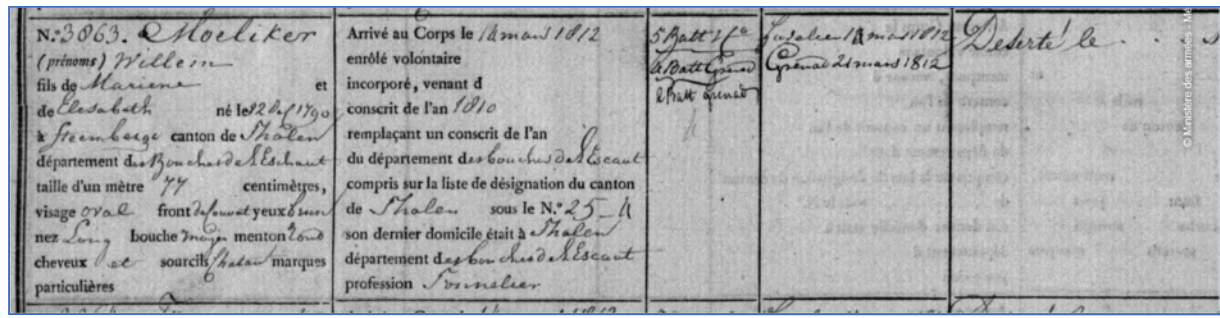 N.º 3863. Moeliker
(prénoms) Willem
fils de Mariene et
de Elisabeth né le 12 1790
à Steenberge canton de Tholen
département des Bouches de l'Eschaut
taille d'un mètre 77 centimètres,
visage oval front yeux brun
nez Long bouche moyen menton rond
cheveux et sourcils Chatan marques
particulières
Arrivé au Corps le 14 mars 1812
enrôlé volontaire
incorporé, venant d
conscrit de l'an 1810
remplaçant un conscrit de l'an
du département des bouches de l'Escaut
compris sur la liste de désignation du canton
de Tholen sous le N.º 25
son dernier domicile était à Tholen
département des bouches de l'Escaut
profession Tonnelier
5 Batt
Batt Grenad
2 Batt Grenad
Fusilier 14 mars 1812
Grenad 21 mars 1812
Deserté le
© Ministère des armées - Mé